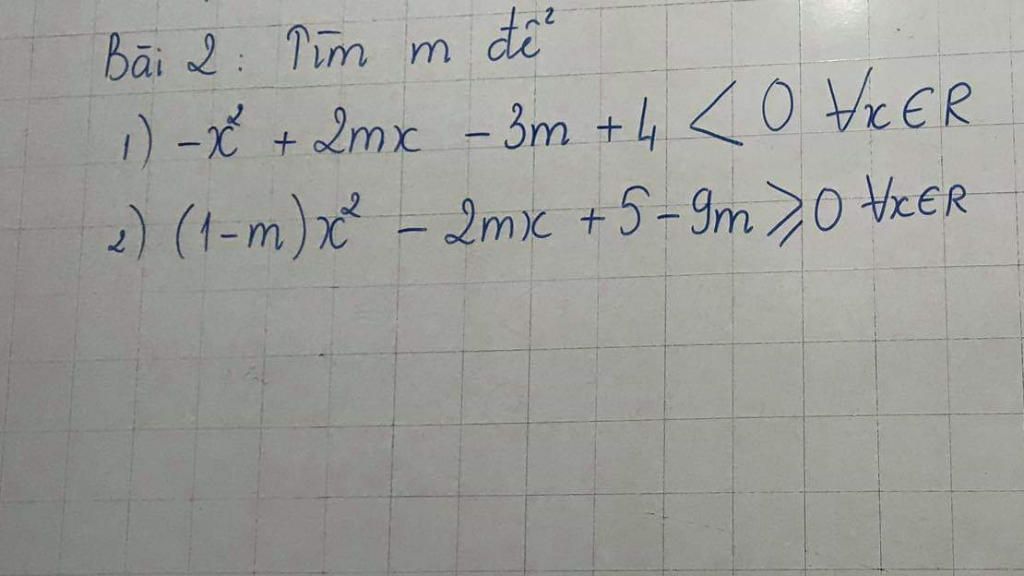 Bài 2: Tìm m để
1) -x² + 2mx - 3m + 4 < 0 ∀x∈R
2) (1-m)x² - 2mx + 5 - 9m ⩾ 0 ∀x∈R